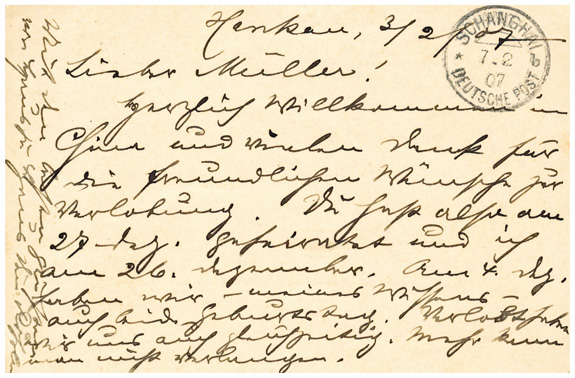 Hankau, 3/2/07
SCHANGHAI
7.2
07
DEUTSCHE POST
Lieber Müller!
Herzlich Willkommen in
China und vielen Dank für
die freundlichen Wünsche zur
Verlobung. Du hast also am
27. Dez. geheiratet und ich
am 26. Dezember. Am 4. Dez.
haben wir – meines Wissens –
auch beide Geburtstag. Verlobt haben
wir uns auch gleichzeitig. Mehr kann
man nicht verlangen.
Mit den besten Grüßen
von Haus zu Haus